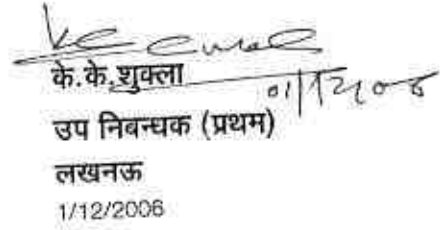 के.के.शुक्ला
01/12/06
उप निबन्धक (प्रथम)
लखनऊ
1/12/2006